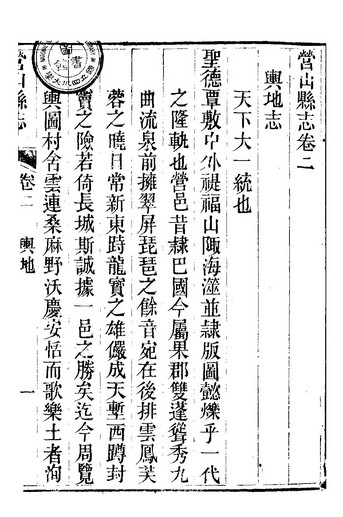 營山縣志卷二
輿地志
天下大一統也
聖德覃敷中外禔福山陬海澨並隷版圖懿爍乎一代
之隆軌也營邑昔隷巴國今屬果郡雙蓬聳秀九
曲流泉前擁翠屏琵琶之餘音宛在後排雲鳳芙
蓉之曉日常新東踌龍實之雄儼成天塹西蹲封
賣之險若倚長城斯誠據一邑之勝矣迄今周覽
輿圖村舍雲連桑麻野沃慶安恬而歌樂土者洵
營山縣志 卷二 輿地 一